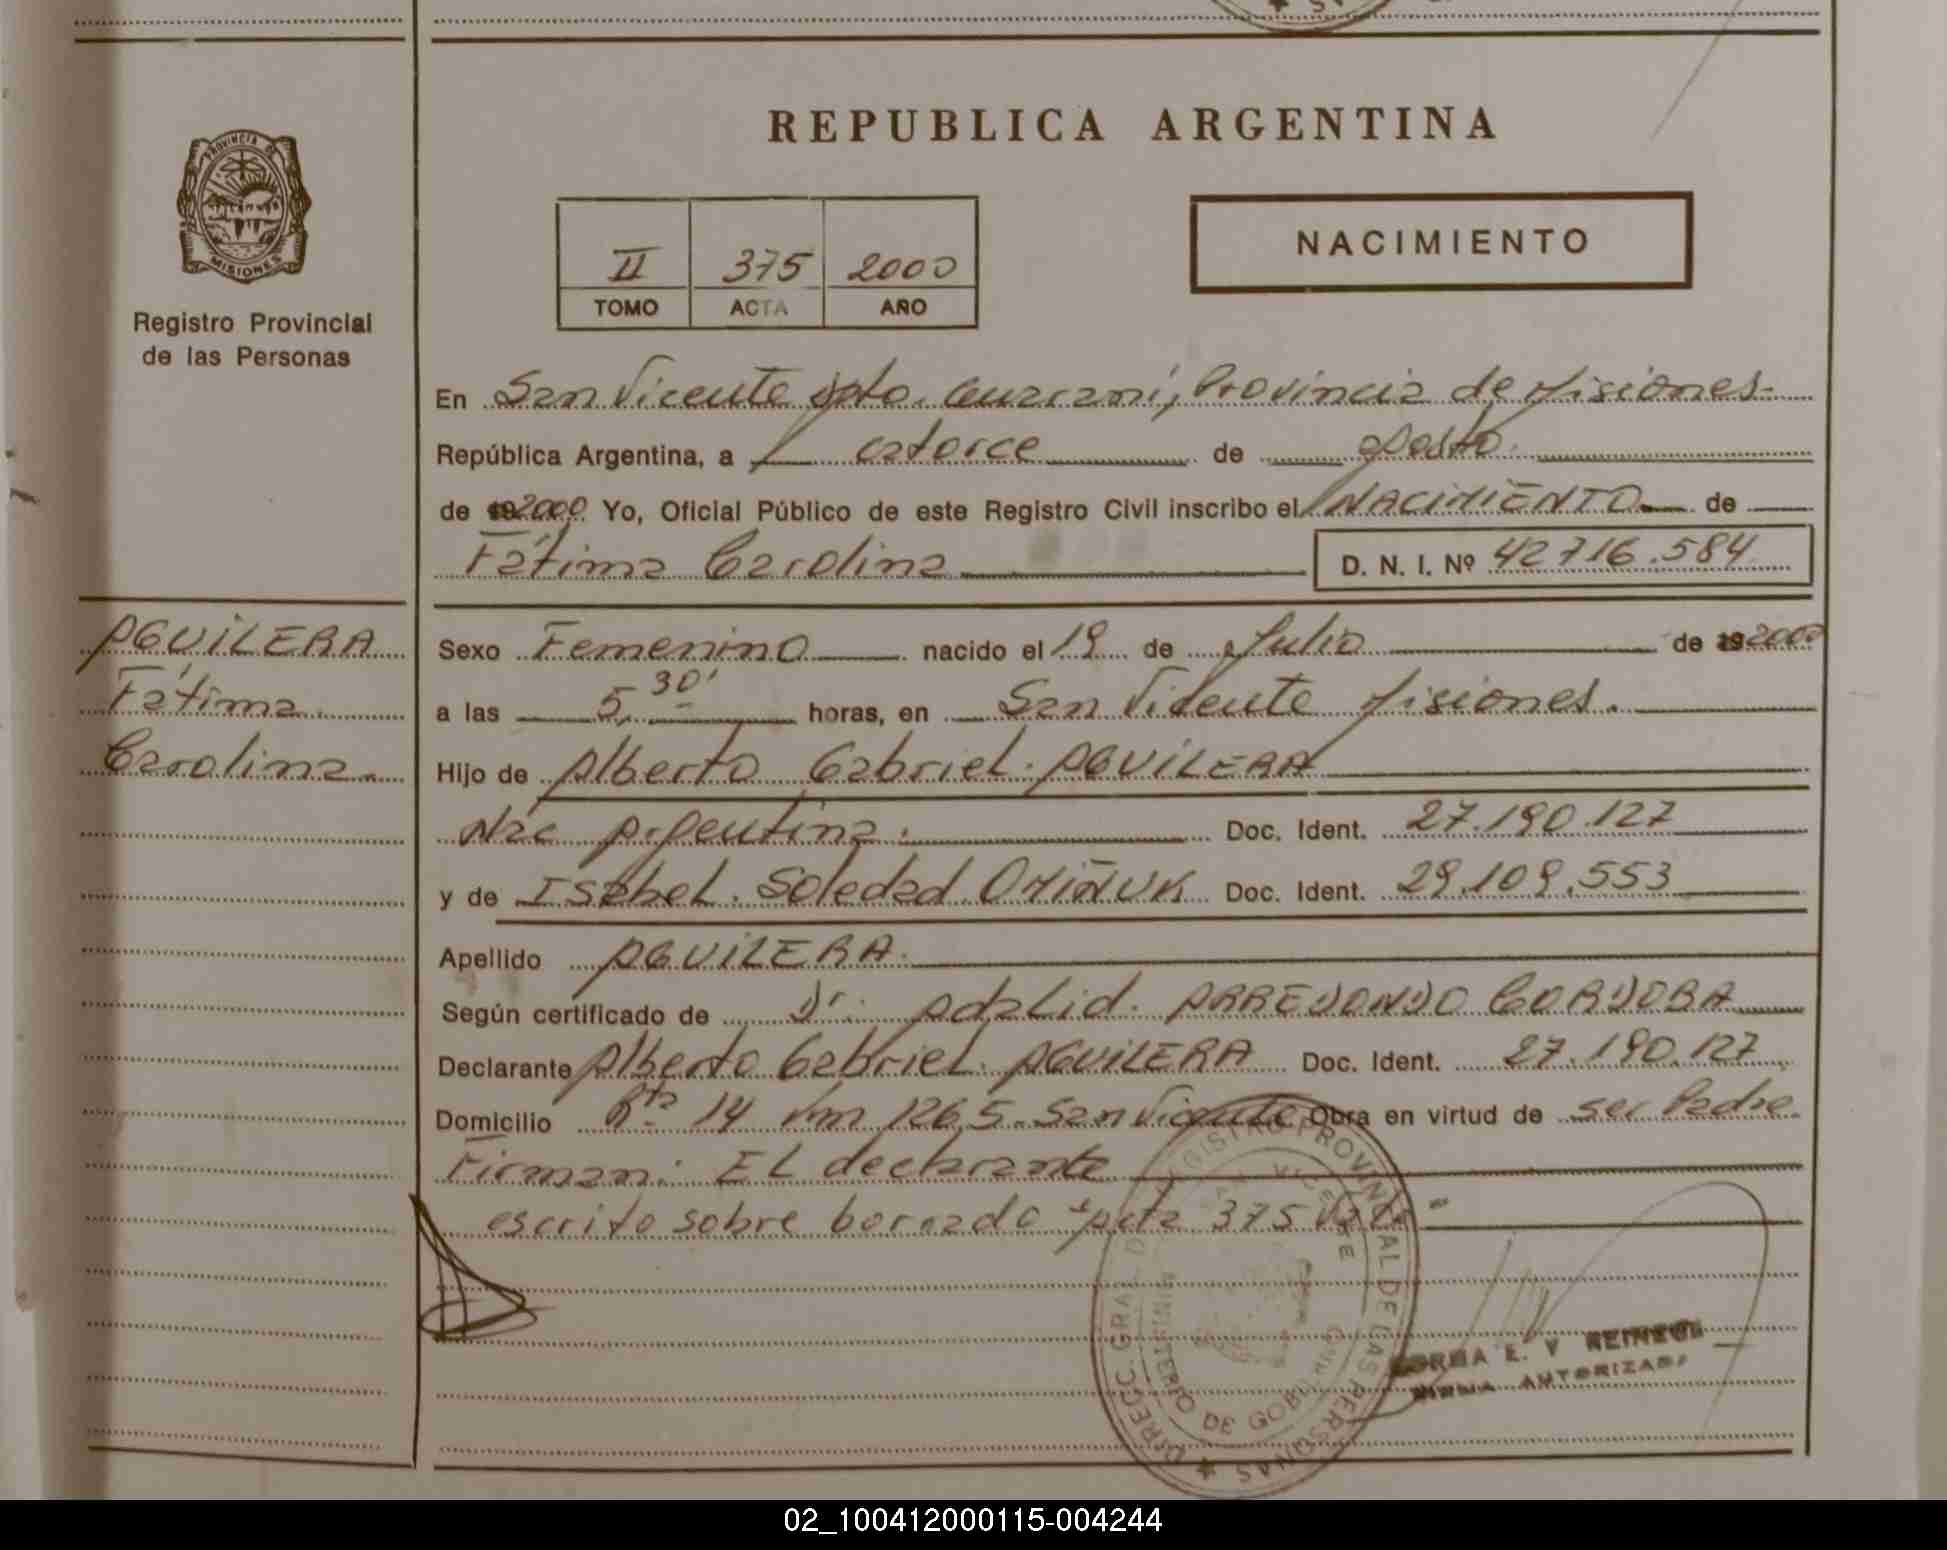 REPUBLICA ARGENTINA
PROVINCIA DE
MISIONES
Registro Provincial
de las Personas
II 375 2000
TOMO ACTA AÑO
NACIMIENTO
En San Vicente Dpto. Guaraní, Provincia de Misiones
República Argentina, a catorce de agosto
de 2000 Yo, Oficial Público de este Registro Civil inscribo el NACIMIENTO de
Fátima Carolina D. N. I. Nº 42716.584
AGUILERA
Fátima
Carolina
Sexo Femenino nacido el 19 de Julio de 2000
a las 5,30' horas, en San Vicente Misiones.
Hijo de Alberto Gabriel AGUILERA
Nac Argentina. Doc. Ident. 27.190.127
y de Isabel Soledad OMIÑUK Doc. Ident. 29.109.553
Apellido AGUILERA
Según certificado de Dr. Adalid ARREDONDO CORDOBA
Declarante Alberto Gabriel AGUILERA Doc. Ident. 27.190.127
Domicilio Rta 14 Km 1265 San Vicente Obra en virtud de ser Padre
Firman: El declarante
escrito sobre borrado "Acta 375 vale"
DIRECC. GRAL. DE REGISTRO PROVINCIAL DE LAS PERSONAS
SAN VICENTE
MINISTERIO DE GOBIERNO
E. V. REINECK
FIRMA AUTORIZADA
02_100412000115-004244